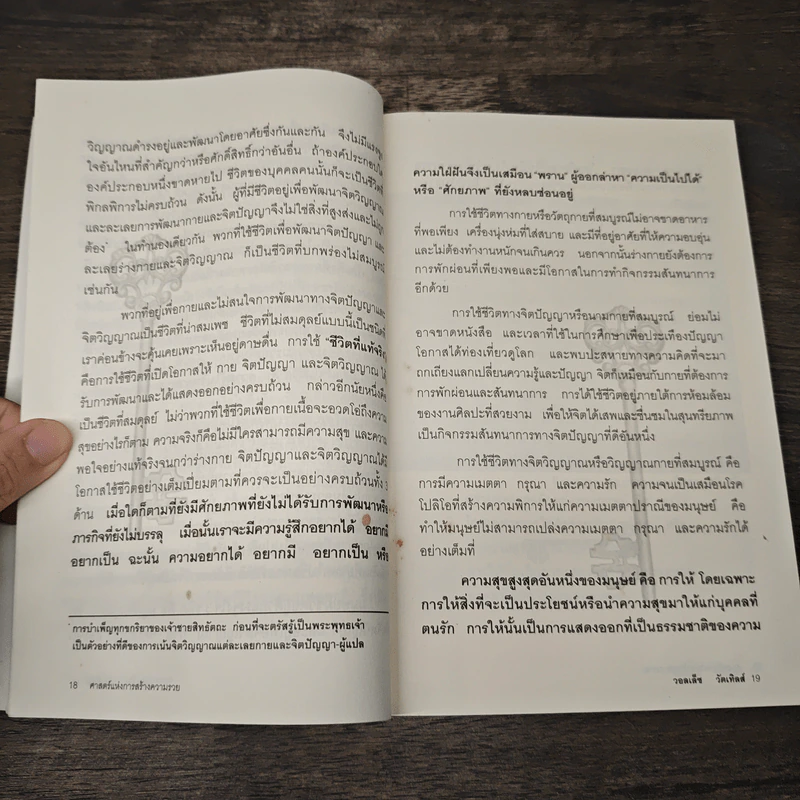 วิญญาณดำรงอยู่และพัฒนาโดยอาศัยซึ่งกันและกัน จึงไม่มี
ใจอันไหนที่สำคัญกว่าหรือศักดิ์สิทธิ์กว่าอันอื่น ถ้าองค์ประกอบใด
องค์ประกอบหนึ่งขาดหายไป ชีวิตของบุคคลคนนั้นก็จะเป็นชีวิตที่
พิกลพิการไม่ครบถ้วน ดังนั้น ผู้ที่มีชีวิตอยู่เพื่อพัฒนาจิตวิญญาณ
และละเลยการพัฒนากายและจิตปัญญาจึงไม่ใช่สิ่งที่สูงส่งและไม่ถูก
ต้อง* ในทำนองเดียวกัน พวกที่ใช้ชีวิตเพื่อพัฒนาจิตปัญญา และ
ละเลยร่างกายและจิตวิญญาณ ก็เป็นชีวิตที่บกพร่องไม่สมบูรณ์
เช่นกัน
พวกที่อยู่เพื่อกายและไม่สนใจการพัฒนาทางจิตปัญญาและ
จิตวิญญาณเป็นชีวิตที่น่าสมเพช ชีวิตที่ไม่สมดุลย์แบบนี้เป็นชนิดที่
เราค่อนข้างจะคุ้นเคยเพราะเห็นอยู่ดาษดื่น การใช้ "ชีวิตที่แท้จริง"
คือการใช้ชีวิตที่เปิดโอกาสให้ กาย จิตปัญญา และจิตวิญญาณ ได้
รับการพัฒนาและได้แสดงออกอย่างครบถ้วน กล่าวอีกนัยหนึ่งคือ
เป็นชีวิตที่สมดุลย์ ไม่ว่าพวกที่ใช้ชีวิตเพื่อกายเนื้อจะอวดโอ้ถึงความ
สุขอย่างไรก็ตาม ความจริงก็คือไม่มีใครสามารถมีความสุข และความ
พอใจอย่างแท้จริงจนกว่าร่างกาย จิตปัญญาและจิตวิญญาณได้มี
โอกาสใช้ชีวิตอย่างเต็มเปี่ยมตามที่ควรจะเป็นอย่างครบถ้วนทั้ง 3
ด้าน เมื่อใดก็ตามที่ยังมีศักยภาพที่ยังไม่ได้รับการพัฒนาหรือ
ภารกิจที่ยังไม่บรรลุ เมื่อนั้นเราจะมีความรู้สึกอยากได้ อยากมี
อยากเป็น ฉะนั้น ความอยากได้ อยากมี อยากเป็น หรือ
* การบำเพ็ญทุกขกริยาของเจ้าชายสิทธัตถะ ก่อนที่จะตรัสรู้เป็นพระพุทธเจ้า
เป็นตัวอย่างที่ดีของการเน้นจิตวิญญาณแต่ละเลยกายและจิตปัญญา-ผู้แปล
18 ศาสตร์แห่งการสร้างความรวย
ความใฝ่ฝันจึงเป็นเสมือน "พราน" ผู้ออกล่าหา "ความเป็นไปได้"
หรือ "ศักยภาพ" ที่ยังหลบซ่อนอยู่
การใช้ชีวิตทางกายหรือวัตถุกายที่สมบูรณ์ไม่อาจขาดอาหาร
ที่พอเพียง เครื่องนุ่งห่มที่ใส่สบาย และมีที่อยู่อาศัยที่ให้ความอบอุ่น
และไม่ต้องทำงานหนักจนเกินควร นอกจากนั้นร่างกายยังต้องการ
การพักผ่อนที่เพียงพอและมีโอกาสในการทำกิจกรรมสันทนาการ
อีกด้วย
การใช้ชีวิตทางจิตปัญญาหรือนามกายที่สมบูรณ์ ย่อมไม่
อาจขาดหนังสือ และเวลาที่ใช้ในการศึกษาเพื่อประเทืองปัญญา
โอกาสได้ท่องเที่ยวดูโลก และพบปะสหายทางความคิดที่จะมา
ถกเถียงแลกเปลี่ยนความรู้และปัญญา จิตก็เหมือนกับกายที่ต้องการ
การพักผ่อนและสันทนาการ การได้ใช้ชีวิตอยู่ภายใต้การห้อมล้อม
ของงานศิลปะที่สวยงาม เพื่อให้จิตได้เสพและชื่นชมในสุนทรียภาพ
เป็นกิจกรรมสันทนาการทางจิตปัญญาที่ดีอันหนึ่ง
การใช้ชีวิตทางจิตวิญญาณหรือวิญญาณกายที่สมบูรณ์ คือ
การมีความเมตตา กรุณา และความรัก ความจนเป็นเสมือนโรค
โปลิโอที่สร้างความพิการให้แก่ความเมตตาปราณีของมนุษย์ คือ
ทำให้มนุษย์ไม่สามารถเปล่งความเมตตา กรุณา และความรักได้
อย่างเต็มที่
ความสุขสูงสุดอันหนึ่งของมนุษย์ คือ การให้ โดยเฉพาะ
การให้สิ่งที่จะเป็นประโยชน์หรือนำความสุขมาให้แก่บุคคลที่
ตนรัก การให้นั้นเป็นการแสดงออกที่เป็นธรรมชาติของความ
วอลเล็ซ วัตเทิลส์ 19